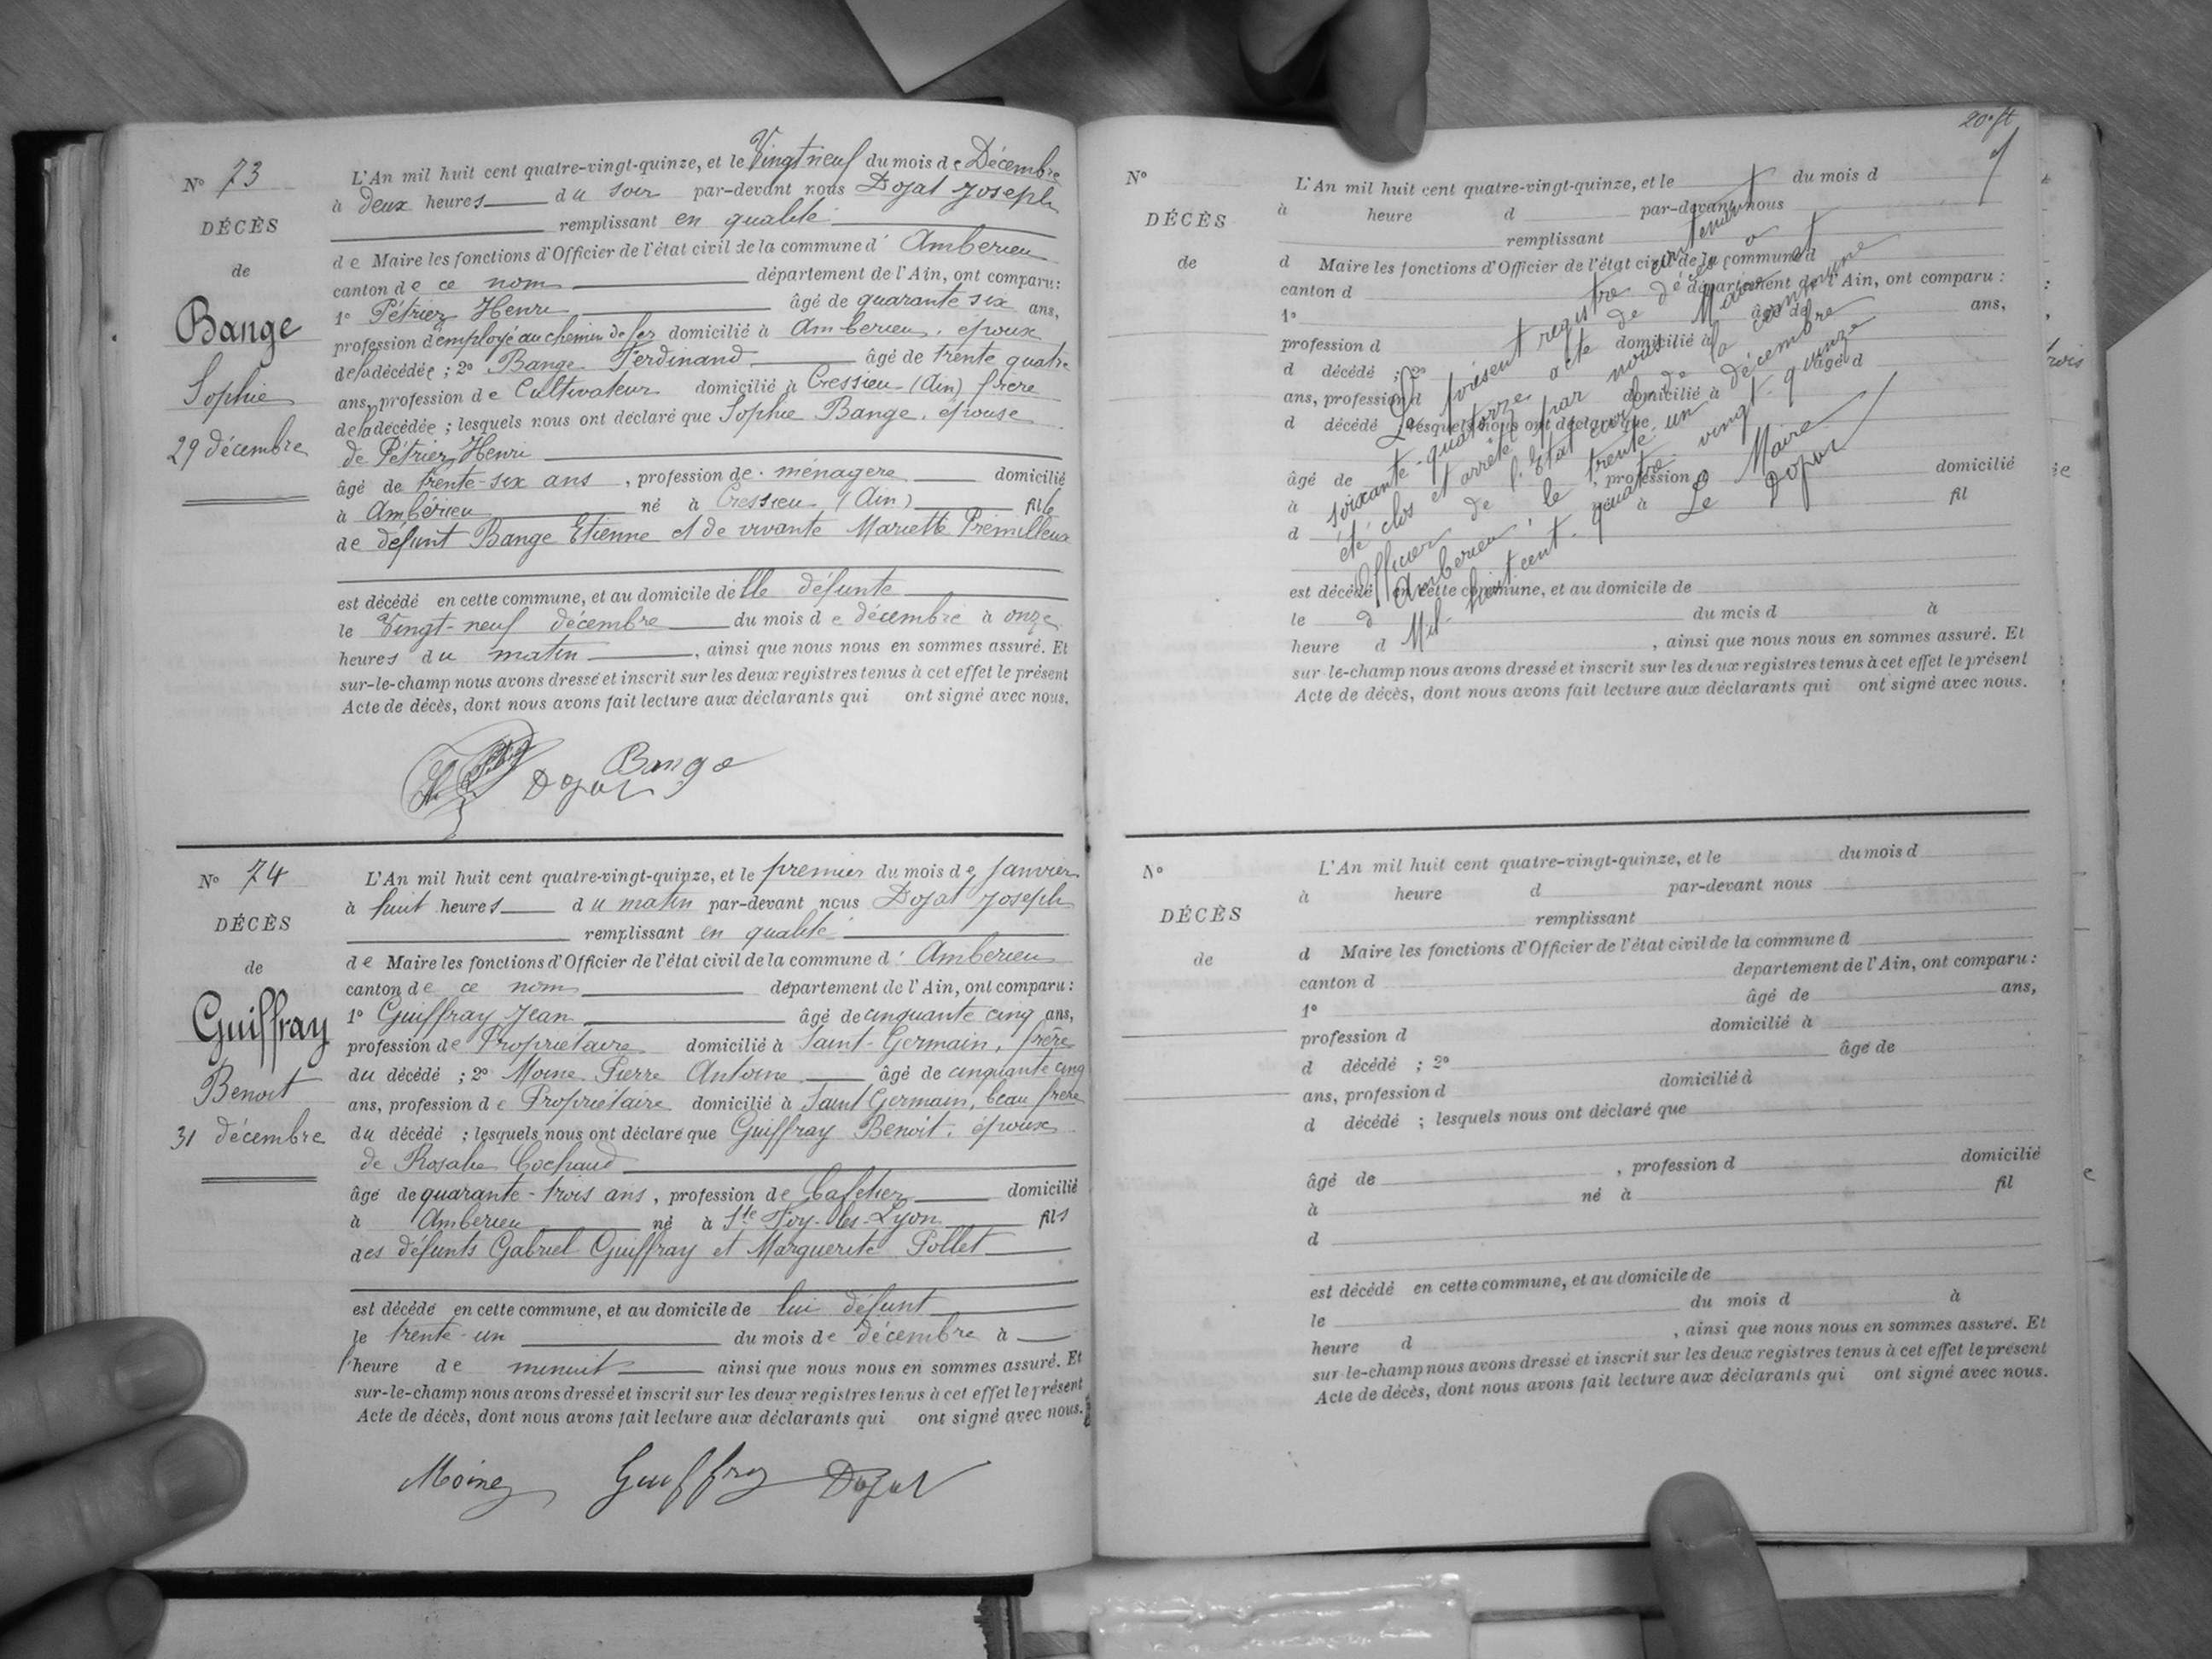 N° 73
DÉCÈS
de
Bange
Sophie
29 décembre
L'An mil huit cent quatre-vingt-quinze, et le Vingt neuf du mois de Décembre
à deux heures du soir par-devant nous Dozat Joseph
remplissant en qualité
de Maire les fonctions d'Officier de l'état civil de la commune d' Amberieu
canton de ce nom département de l'Ain, ont comparu:
1° Pétrier Henri âgé de quarante six ans,
profession d'employé au chemin de fer domicilié à Amberieu, époux
de la décédée ; 2° Bange Ferdinand âgé de trente quatre
ans, profession de Cultivateur domicilié à Cressieu (Ain) frère
de la décédée ; lesquels nous ont déclaré que Sophie Bange, épouse
de Pétrier Henri
âgé de trente-six ans , profession de ménagère domicilié
à Ambérieu né à Cressieu (Ain) fille
de défunt Bange Etienne et de vivante Mariette Premilleux
est décédé en cette commune, et au domicile d'elle défunte
le Vingt-neuf décembre du mois de décembre à onze
heures du matin , ainsi que nous nous en sommes assuré. Et
sur-le-champ nous avons dressé et inscrit sur les deux registres tenus à cet effet le présent
Acte de décès, dont nous avons fait lecture aux déclarants qui ont signé avec nous.
Bange
Dozat
N° 74
DÉCÈS
de
Guiffray
Benoit
31 décembre
L'An mil huit cent quatre-vingt-quinze, et le premier du mois de Janvier
à huit heures du matin par-devant nous Dozat Joseph
remplissant en qualité
de Maire les fonctions d'Officier de l'état civil de la commune d' Amberieu
canton de ce nom département de l'Ain, ont comparu :
1° Guiffray Jean âgé de cinquante cinq ans,
profession de Propriétaire domicilié à Saint-Germain, frère
du décédé ; 2° Moine Pierre Antoine âgé de cinquante cinq
ans, profession de Propriétaire domicilié à Saint Germain, beau frère
du décédé ; lesquels nous ont déclaré que Guiffray Benoit, époux
de Rosalie Cochaud
âgé de quarante-trois ans , profession de Cafetier domicilié
à Amberieu né à Ste Foy-les-Lyon fils
des défunts Gabriel Guiffray et Marguerite Pollet
est décédé en cette commune, et au domicile de lui défunt
le trente-un du mois de décembre à
l'heure de minuit ainsi que nous nous en sommes assuré. Et
sur-le-champ nous avons dressé et inscrit sur les deux registres tenus à cet effet le présent
Acte de décès, dont nous avons fait lecture aux déclarants qui ont signé avec nous.
Moine Guiffray Dozat
N°
DÉCÈS
de
L'An mil huit cent quatre-vingt-quinze, et le du mois d
à heure d par-devant nous
remplissant
d Maire les fonctions d'Officier de l'état civil de la commune d
canton d département de l'Ain, ont comparu :
1° âgé de ans,
profession d domicilié à
d décédé ; 2° âgé d
ans, profession d domicilié à
d décédé ; lesquels nous ont déclaré que
âgé de , profession d domicilié
à né à fil
d
est décédé en cette commune, et au domicile de
le du mois d à
heure d , ainsi que nous nous en sommes assuré. Et
sur-le-champ nous avons dressé et inscrit sur les deux registres tenus à cet effet le présent
Acte de décès, dont nous avons fait lecture aux déclarants qui ont signé avec nous.
Le présent registre contenant
soixante-quatorze acte de décès a
été clos et arrêté par nous Maire et
Officier de l'Etat civil de la commune
d'Amberieu, le trente-un décembre
Mil-huit cent-quatre-vingt-quinze
Le Maire
Dozat
N°
DÉCÈS
de
L'An mil huit cent quatre-vingt-quinze, et le du mois d
à heure d par-devant nous
remplissant
d Maire les fonctions d'Officier de l'état civil de la commune d
canton d departement de l'Ain, ont comparu :
1° âgé de ans,
profession d domicilié à
d décédé ; 2° âgé de
ans, profession d domicilié à
d décédé ; lesquels nous ont déclaré que
âgé de , profession d domicilié
à né à fil
d
est décédé en cette commune, et au domicile de
le du mois d à
heure d , ainsi que nous nous en sommes assuré. Et
sur-le-champ nous avons dressé et inscrit sur les deux registres tenus à cet effet le présent
Acte de décès, dont nous avons fait lecture aux déclarants qui ont signé avec nous.